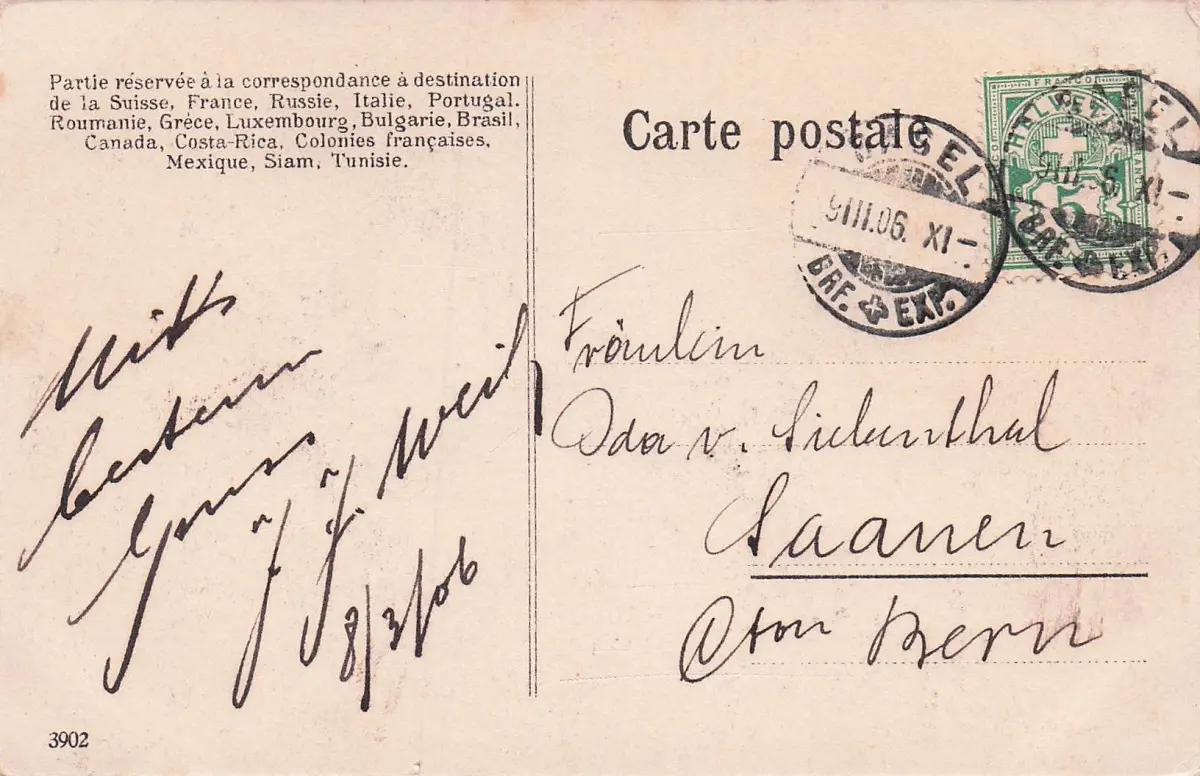 Partie réservée à la correspondance à destination
de la Suisse, France, Russie, Italie, Portugal.
Roumanie, Gréce, Luxembourg, Bulgarie, Brasil,
Canada, Costa-Rica, Colonies françaises,
Mexique, Siam, Tunisie.
Carte postale
FRANCO
HELVETIA
5
BASEL
9 III. 06. XI-
BRF. EXP.
BASEL
9 III. 06. XI-
BRF. EXP.
Mit
bestem
Gruss
J. J. Weil
8/3/06
Fräulein
Ida v. Siebenthal
Saanen
Cton Bern
3902